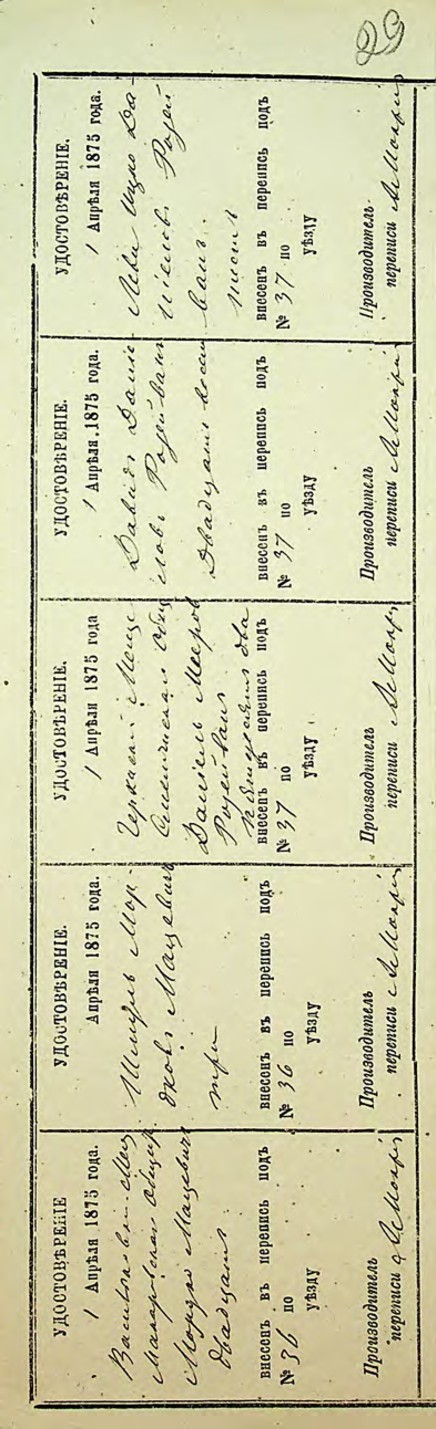 29
УДОСТОВѢРЕНІЕ
1 Апрѣля 1875 года.
Васильков. Мѣщ
Макаровская общин.
Мордко Мацевичъ
двадцать
внесенъ въ перепись подъ
№ 36 по
уѣзду
Производитель
переписи
УДОСТОВѢРЕНІЕ.
Апрѣля 1875 года.
Шмуль Мор-
дковъ Мацевичъ
три
внесенъ въ перепись подъ
№ 36 по
уѣзду
Производитель
переписи
УДОСТОВѢРЕНІЕ.
1 Апрѣля 1875 года
Черкаскій Меще
Смелянская Общ
Даніель Мееров
Ройтванъ
пятьдесятъ два
внесенъ въ перепись подъ
№ 37 по
уѣзду
Производитель
переписи
УДОСТОВѢРЕНІЕ.
1 Апрѣля 1875 года.
Давидъ Даніе
ловъ Ройтванъ
Двадцать восем
внесенъ въ перепись подъ
№ 37 по
уѣзду
Производитель
переписи
УДОСТОВѢРЕНІЕ.
1 Апрѣля 1875 года.
Лейви Ицко Да-
ніеловъ Ройт
ванъ.
внесенъ въ перепись подъ
№ 37 по
уѣзду
Производитель
переписи